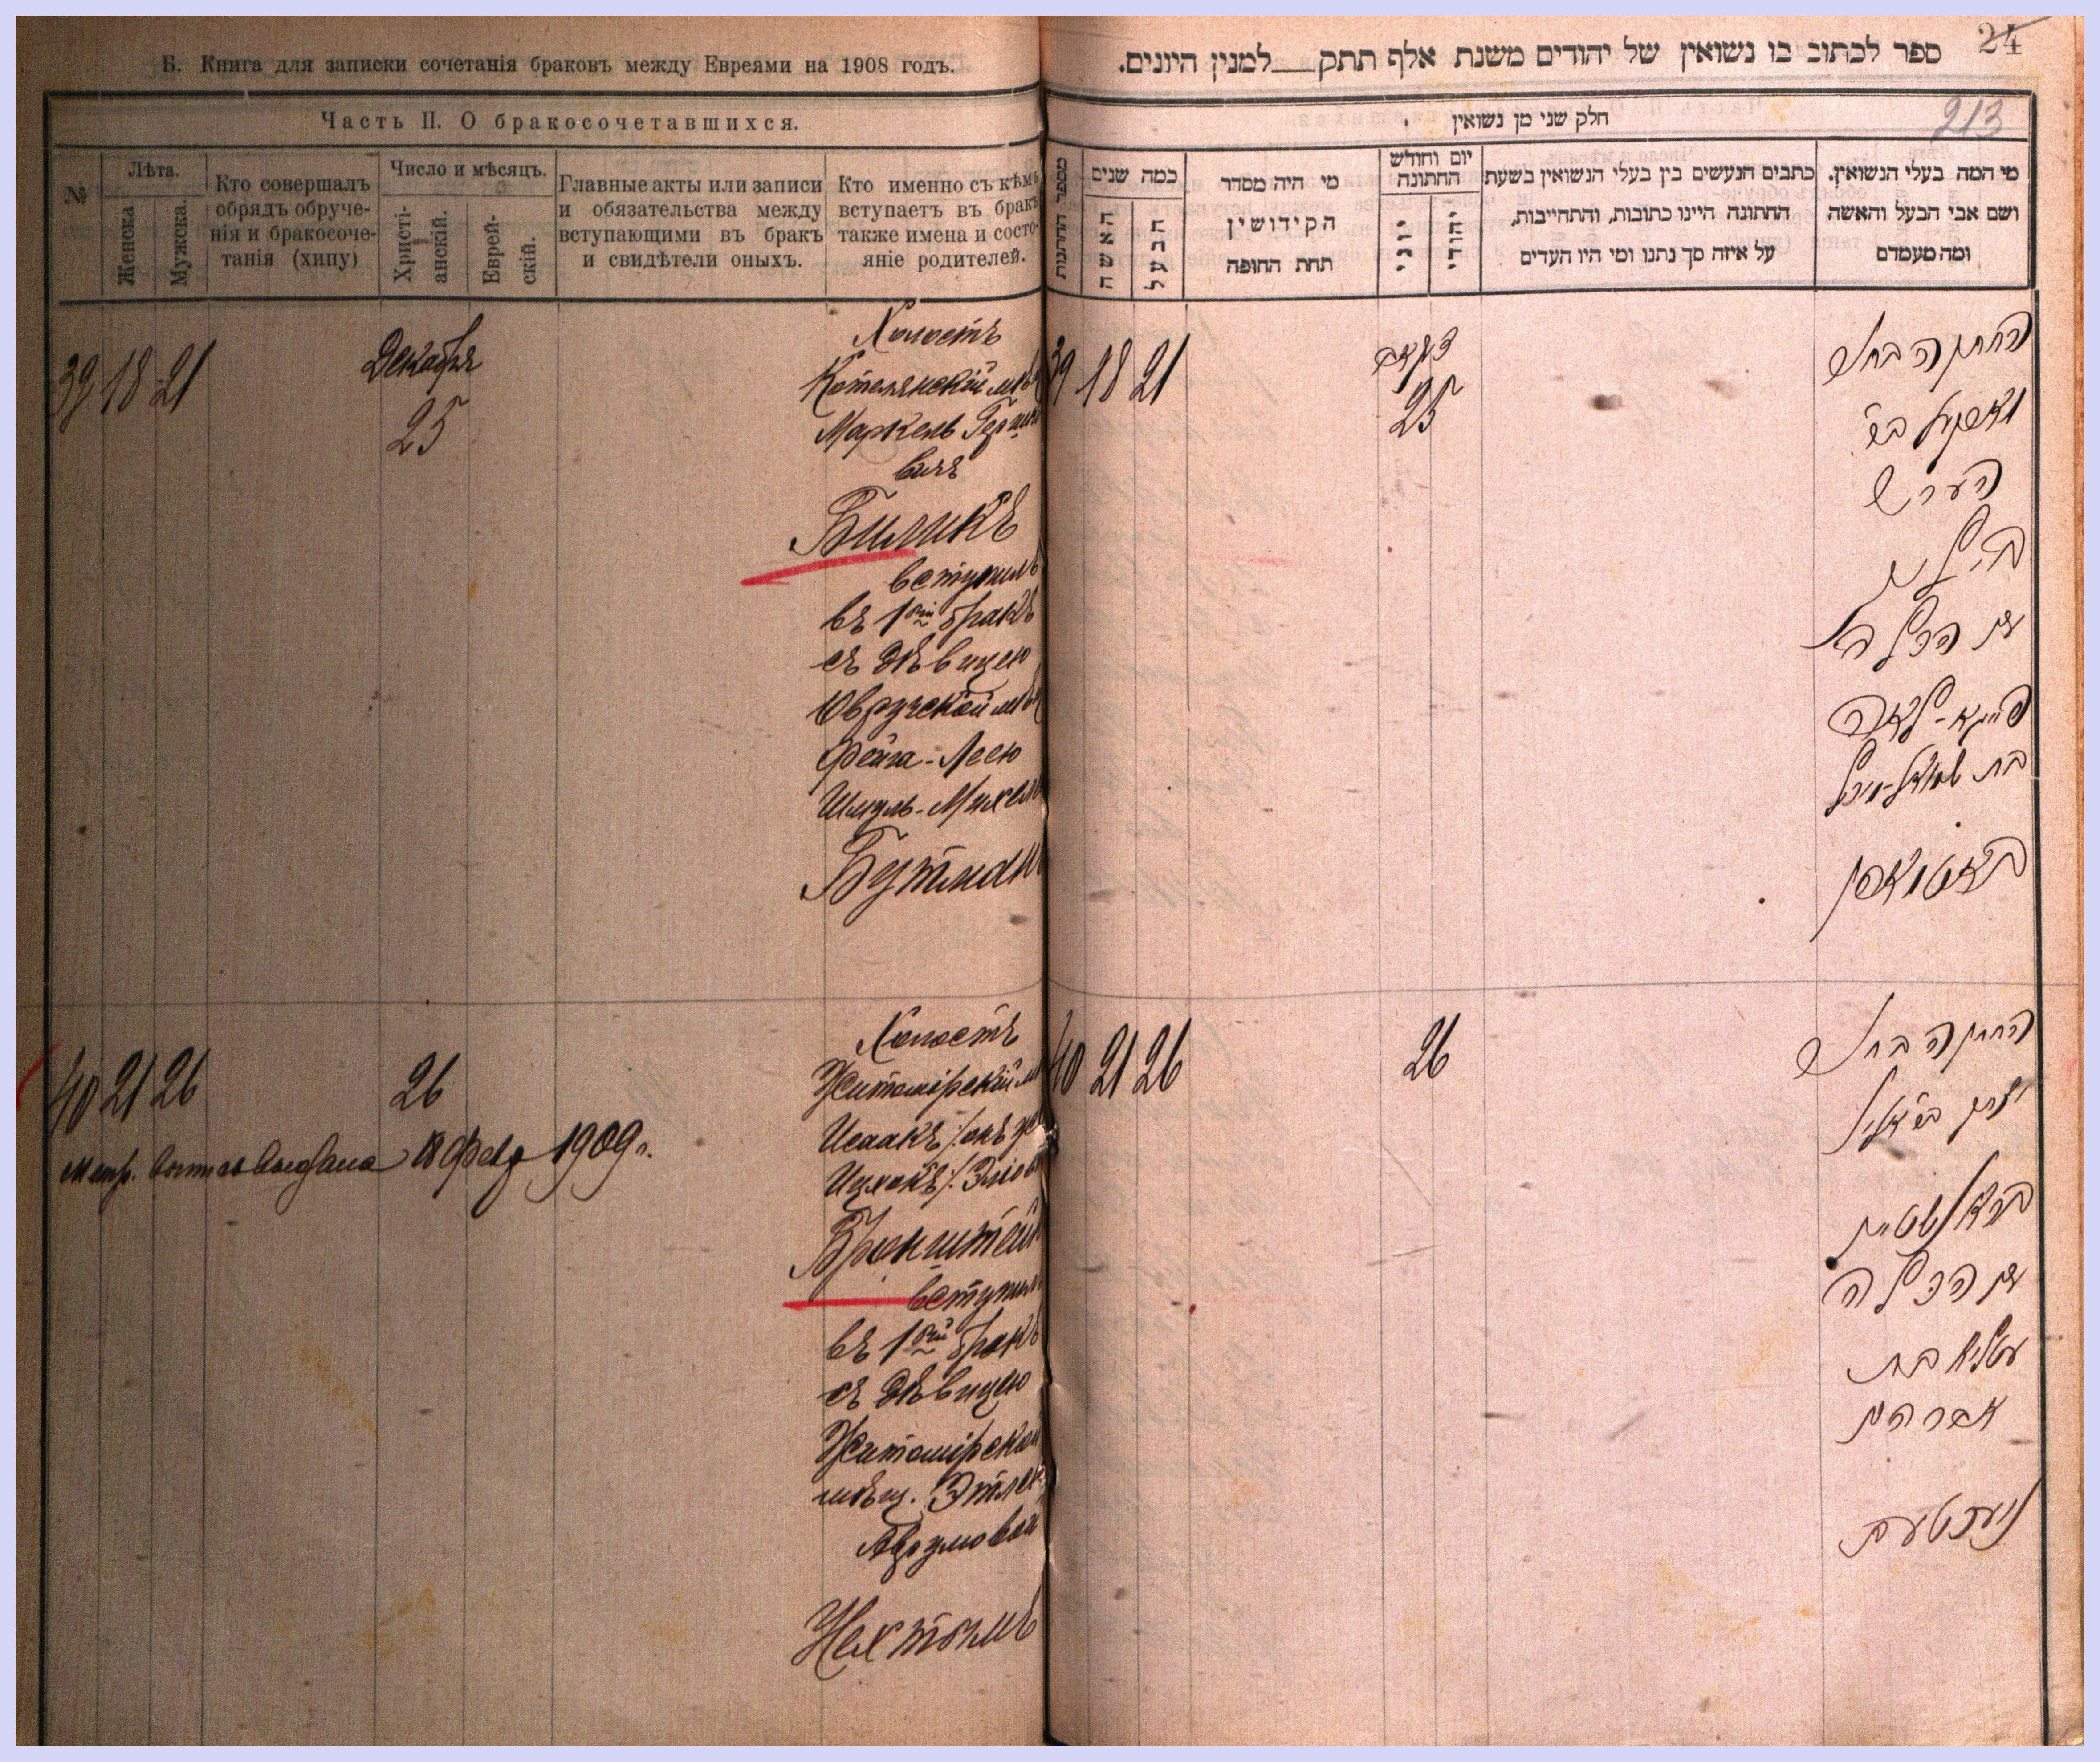 Б. Книга для записки сочетанія браковъ между Евреями на 1908 годъ.
Часть II. О бракосочетавшихся.
№
Лѣта.
Женска
Мужска.
Кто совершалъ
обрядъ обруче-
нія и бракосоче-
танія (хипу)
Число и мѣсяцъ.
Христі-
анскій.
Еврей-
скій.
Главные акты или записи
и обязательства между
вступающими въ бракъ
и свидѣтели оныхъ.
Кто именно съ кѣмъ
вступаетъ въ бракъ
также имена и состо-
яніе родителей.
39 18 21
Декабря
25
Холостъ
Котелянскій мѣщ
Маркель Гершко
вичъ
Биликъ
вступилъ
въ 1ый бракъ
съ дѣвицею
Овручской мѣщ
Фейга-Леею
Шмуль-Михел
Бутман
40 21 26
26
Метр. выпись выдана 18 Февр 1909 г.
Холостъ
Житомірскій м
Исаакъ /:онъ же
Ицхокъ:/ Эліов
Бронштейн
вступилъ
въ 1ый бракъ
съ дѣвицею
Житомірской
мѣщ. Этлею
Аврумовой
Нехтомъ
24
ספר לכתוב בו נשואין של יהודים משנת אלף תתק__למנין היונים.
213
חלק שני מן נשואין
מספר החתונות
כמה שנים
האשה
הבעל
מי היה מסדר
הקידושין
תחת החופה
יום וחודש
החתונה
יוני
יהודי
כתבים הנעשים בין בעלי הנשואין בשעת
החתונה היינו כתובות, והתחייבות,
על איזה סך נתנו ומי היו העדים
מי המה בעלי הנשואין.
ושם אבי הבעל והאשה
ומה מעמדם
39 18 21
דעקאב
25
החתן הבחור
הערש
ביליק
עם הכלה
פייגא-לאה
בת שמואל-מיכל
40 21 26
26
החתן הבחור
בראנשטיין
עם הכלה
עטליא בת
אברהם